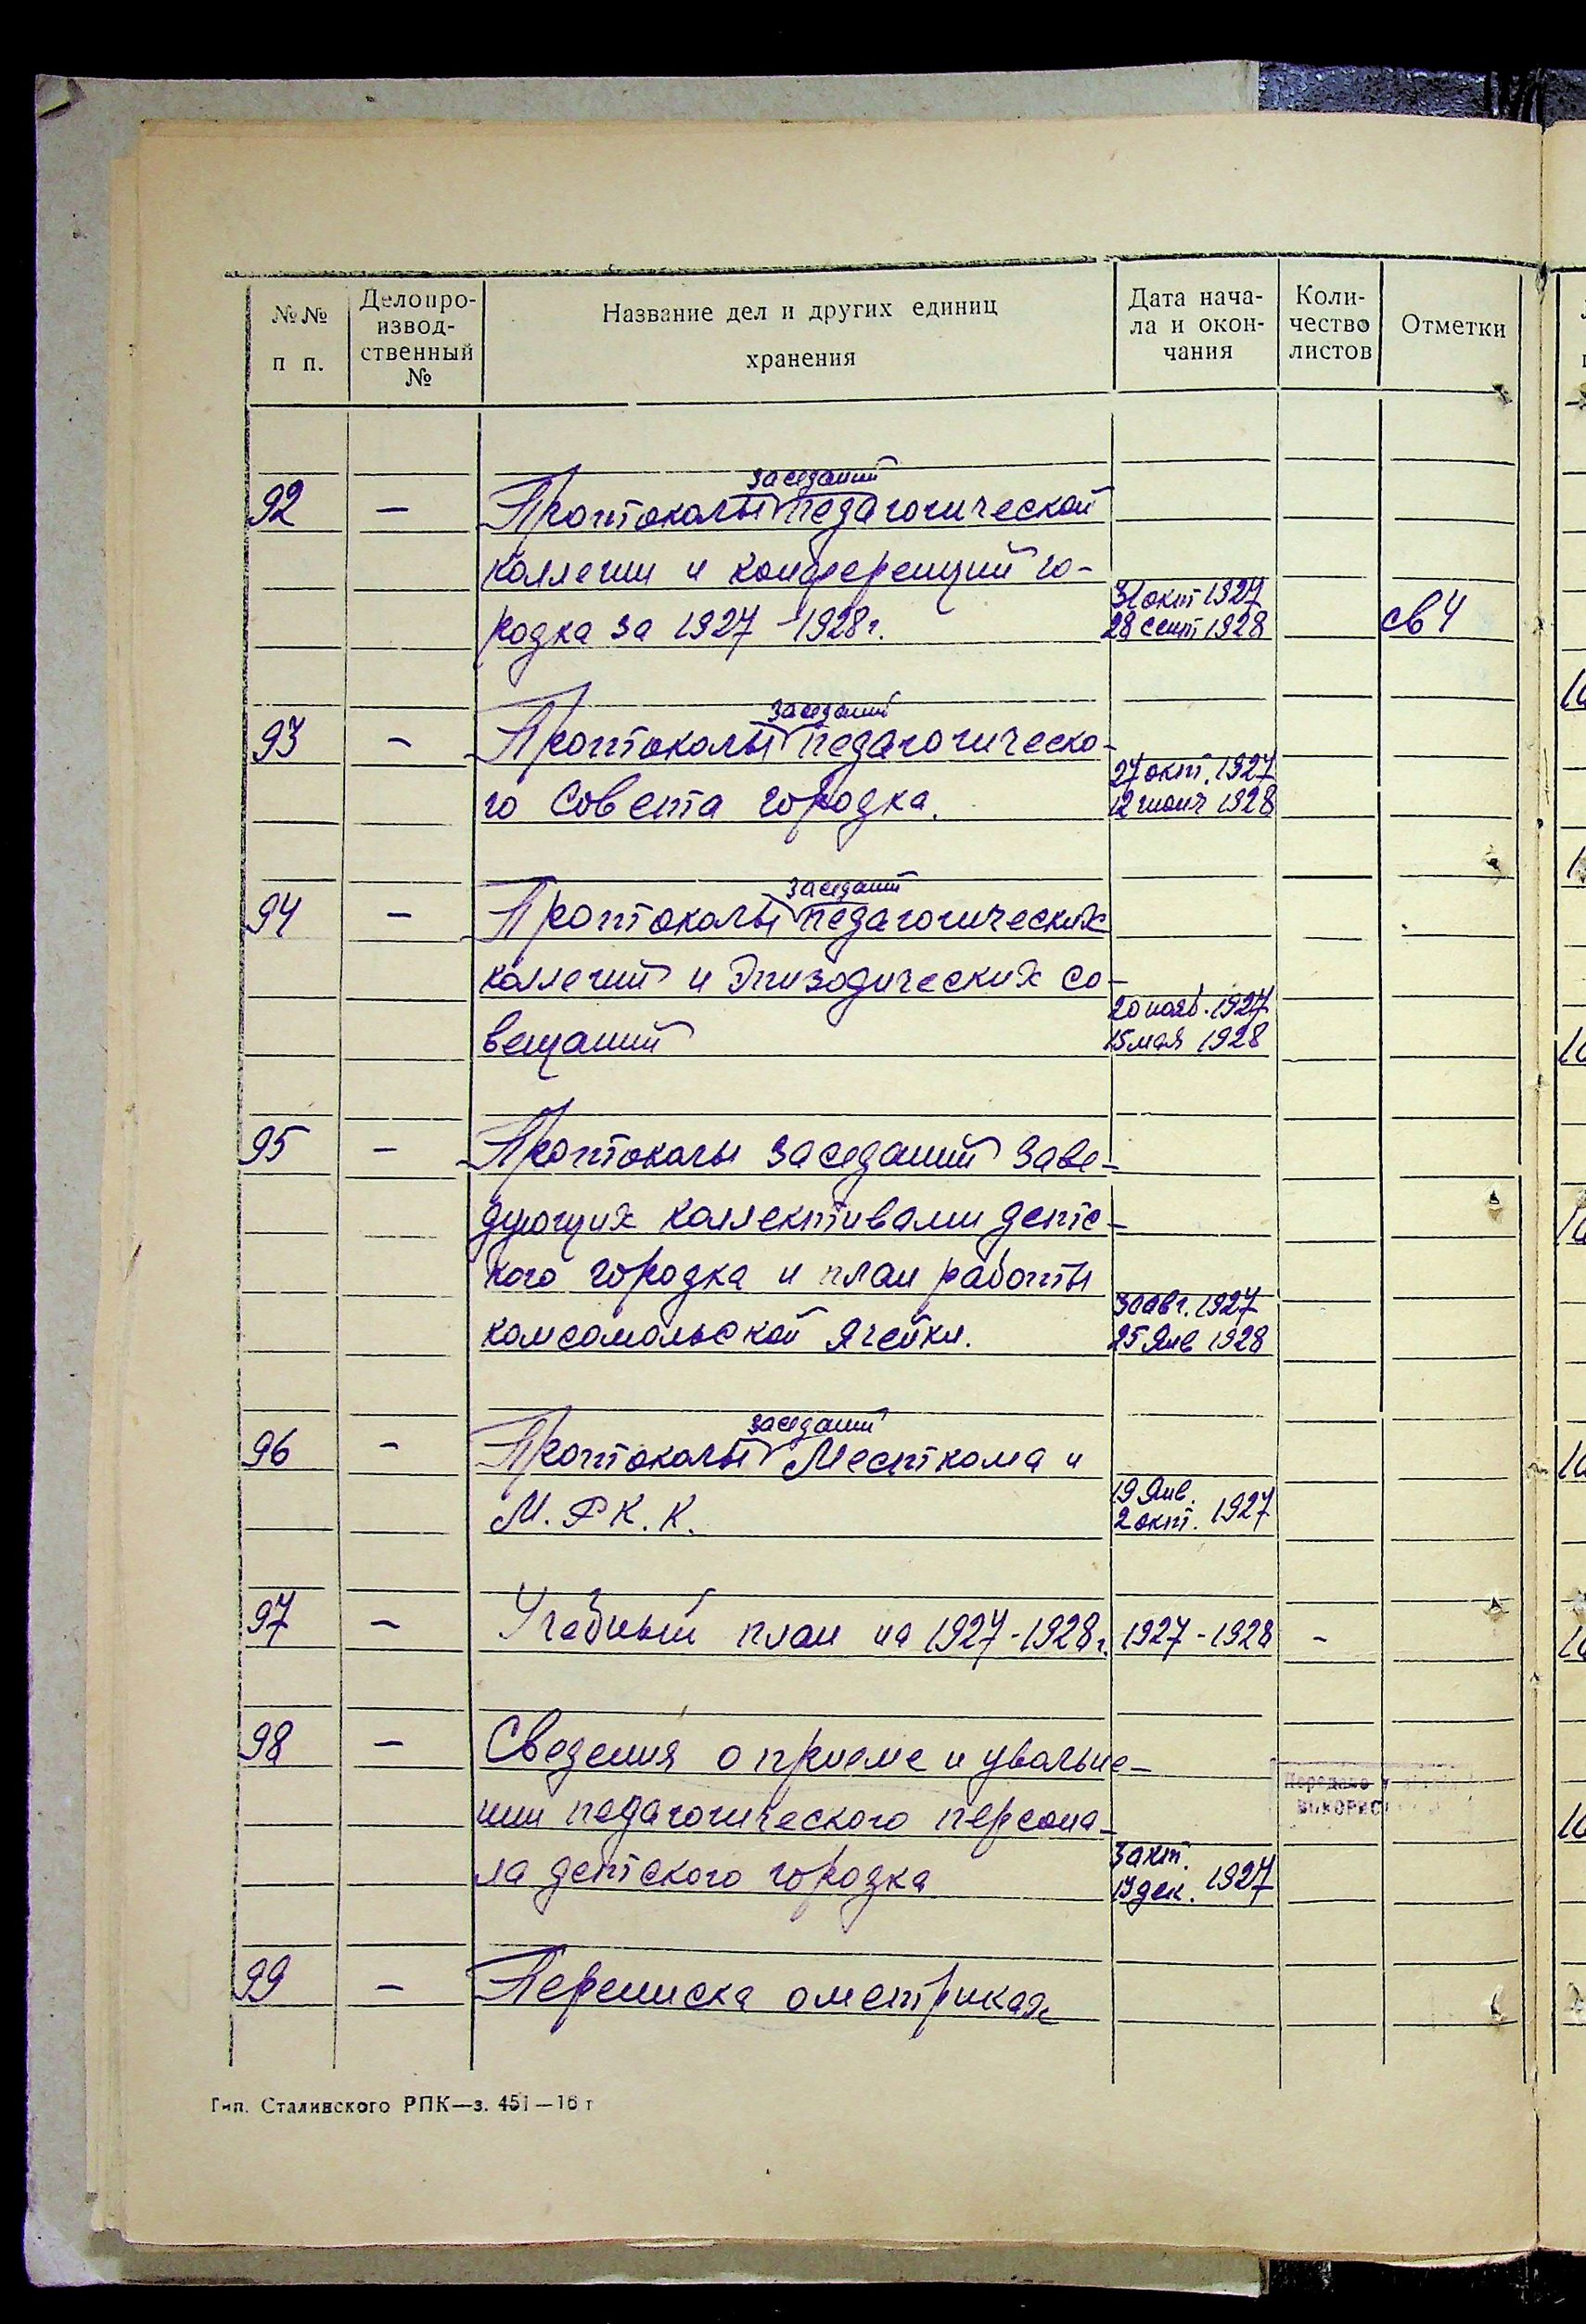 №№ п п.
Делопро-
извод-
ственный
№
Название дел и других единиц
хранения
Дата нача-
ла и окон-
чания
Коли-
чество
листов
Отметки
заседаний
92 – Протоколы педагогической
коллегии и конференций го-
31 окт 1927
родка за 1927 - 1928 г. 28 сент 1928 св 4
заседаний
93 – Протоколы педагогическо-
27 окт. 1927
го Совета городка. 12 июня 1928
заседаний
94 – Протоколы педагогических
коллегий и эпизодических со-
20 нояб. 1927
вещаний 15 мая 1928
95 – Протоколы заседаний заве-
дующих коллективами детс-
кого городка и план работы
30 авг. 1927
комсомольской ячейки. 25 Янв 1928
заседаний
96 – Протоколы Месткома и
19 Янв.
М. Р К. К. 2 окт. 1927
97 – Учебный план на 1927-1928 г. 1927-1928 -
98 – Сведения о приеме и увольне-
нии педагогического персона-
3 окт.
ла детского городка 13 дек. 1927
99 – Переписка о метриках
Тип. Сталинского РПК—з. 451—16 т